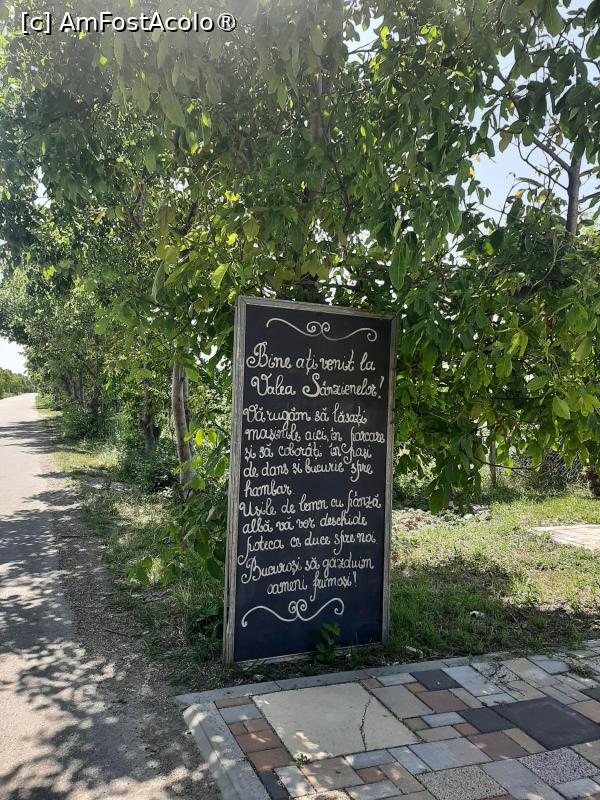 [c] AmFostAcolo®
Bine ați venit la
Valea Sânzienelor!
Vă rugăm să lăsați
mașinile aici, în parcare
și să coborâți în pași
de dans și bucurie spre
hambar.
Ușile de lemn cu pânză
albă vă vor deschide
poteca ce duce spre noi
Bucuroși să găzduim
oameni frumoși!